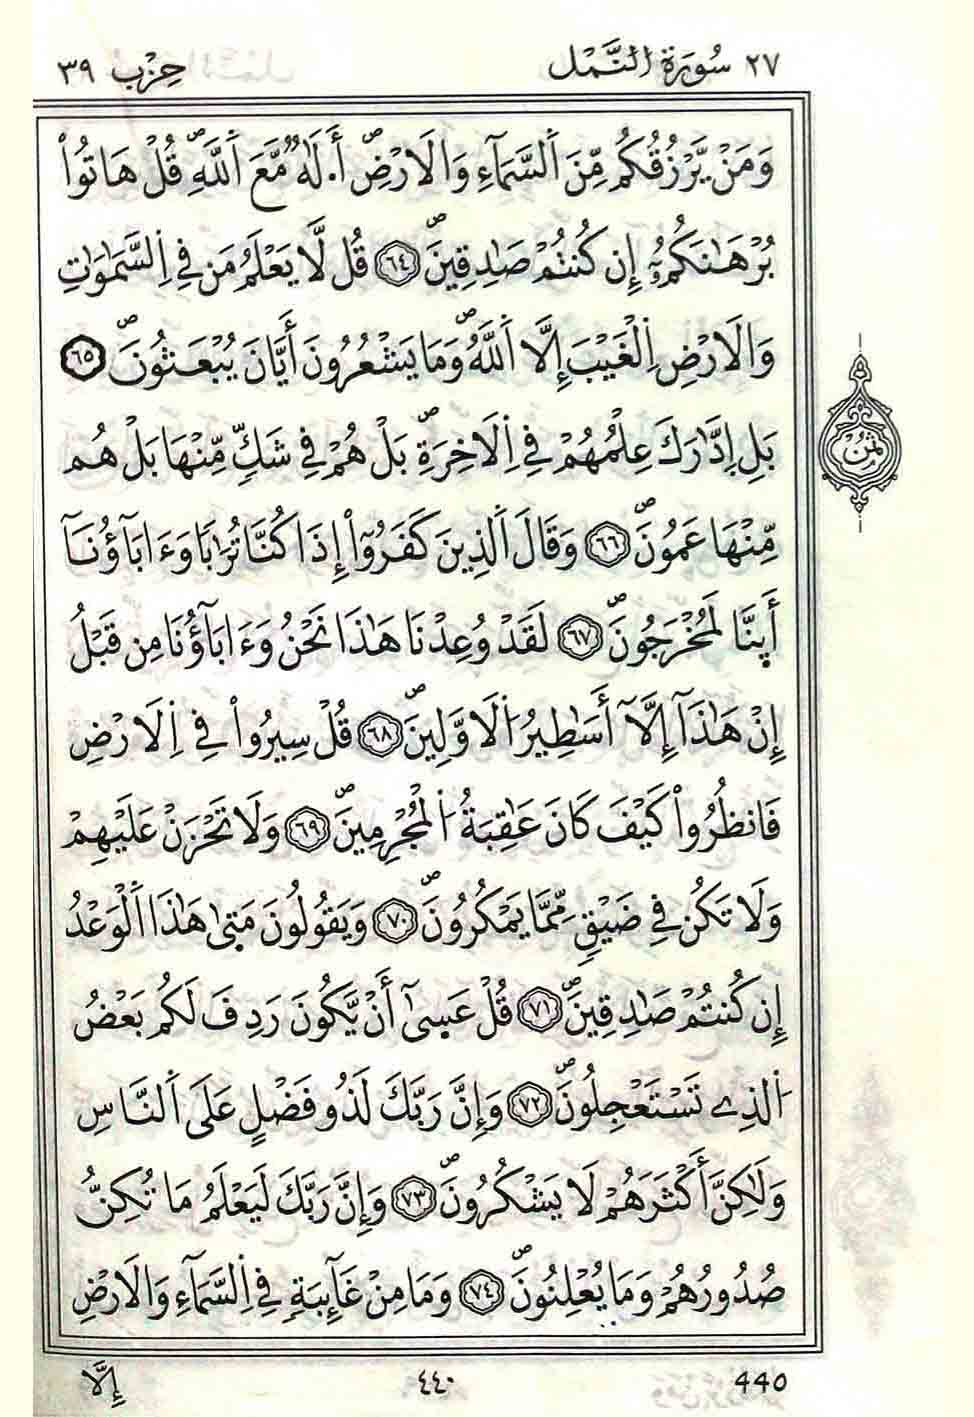 ٢٧ سُورَةُ النَّمْل حِزْب ٣٩
وَمَنْ يَّرْزُقُكُم مِّنَ اَ۬لسَّمَآءِ وَالَارْضِۖ أَ.لَٰهٞ مَّعَ اَ۬للَّهِۖ قُلْ هَاتُواْ
بُرْهَٰنَكُمُۥٓ إِن كُنتُمْ صَٰدِقِينَۖ ٦٤ قُل لَّا يَعْلَمُ مَن فِے اِ۬لسَّمَٰوَٰتِ
وَالَارْضِ اِ۬لْغَيْبَ إِلَّا اَ۬للَّهُۖ وَمَا يَشْعُرُونَ أَيَّانَ يُبْعَثُونَۖ ٦٥
بَلِ اِ۪دَّٰرَكَ عِلْمُهُمْ فِے اِ۬لَاخِرَةِۖ بَلْ هُمْ فِے شَكّٖ مِّنْهَا بَلْ هُم
ثُمُن
مِّنْهَا عَمُونَۖ ٦٦ وَقَالَ اَ۬لذِينَ كَفَرُوٓاْ إِذَا كُنَّا تُرَٰباٗ وَءَابَآؤُنَآ
أَى۪نَّا لَمُخْرَجُونَۖ ٦٧ لَقَدْ وُعِدْنَا هَٰذَا نَحْنُ وَءَابَآؤُنَا مِن قَبْلُ
إِنْ هَٰذَآ إِلَّآ أَسَٰطِيرُ اُ۬لَاوَّلِينَۖ ٦٨ قُلْ سِيرُواْ فِے اِ۬لَارْضِ
فَانظُرُواْ كَيْفَ كَانَ عَٰقِبَةُ اُ۬لْمُجْرِمِينَۖ ٦٩ وَلَا تَحْزَنْ عَلَيْهِمْ
وَلَا تَكُن فِے ضَيْقٖ مِّمَّا يَمْكُرُونَۖ ٧٠ وَيَقُولُونَ مَتىٰ هَٰذَا اَ۬لْوَعْدُ
إِن كُنتُمْ صَٰدِقِينَۖ ٧١ قُلْ عَسىٰٓ أَنْ يَّكُونَ رَدِفَ لَكُم بَعْضُ
اُ۬لذِے تَسْتَعْجِلُونَۖ ٧٢ وَإِنَّ رَبَّكَ لَذُو فَضْلٍ عَلَى اَ۬لنَّاسِ
وَلَٰكِنَّ أَكْثَرَهُمْ لَا يَشْكُرُونَۖ ٧٣ وَإِنَّ رَبَّكَ لَيَعْلَمُ مَا تُكِنُّ
صُدُورُهُمْ وَمَا يُعْلِنُونَۖ ٧٤ وَمَا مِنْ غَآئِبَةٖ فِے اِ۬لسَّمَآءِ وَالَارْضِ
445 ٤٤٠ إِلَّا